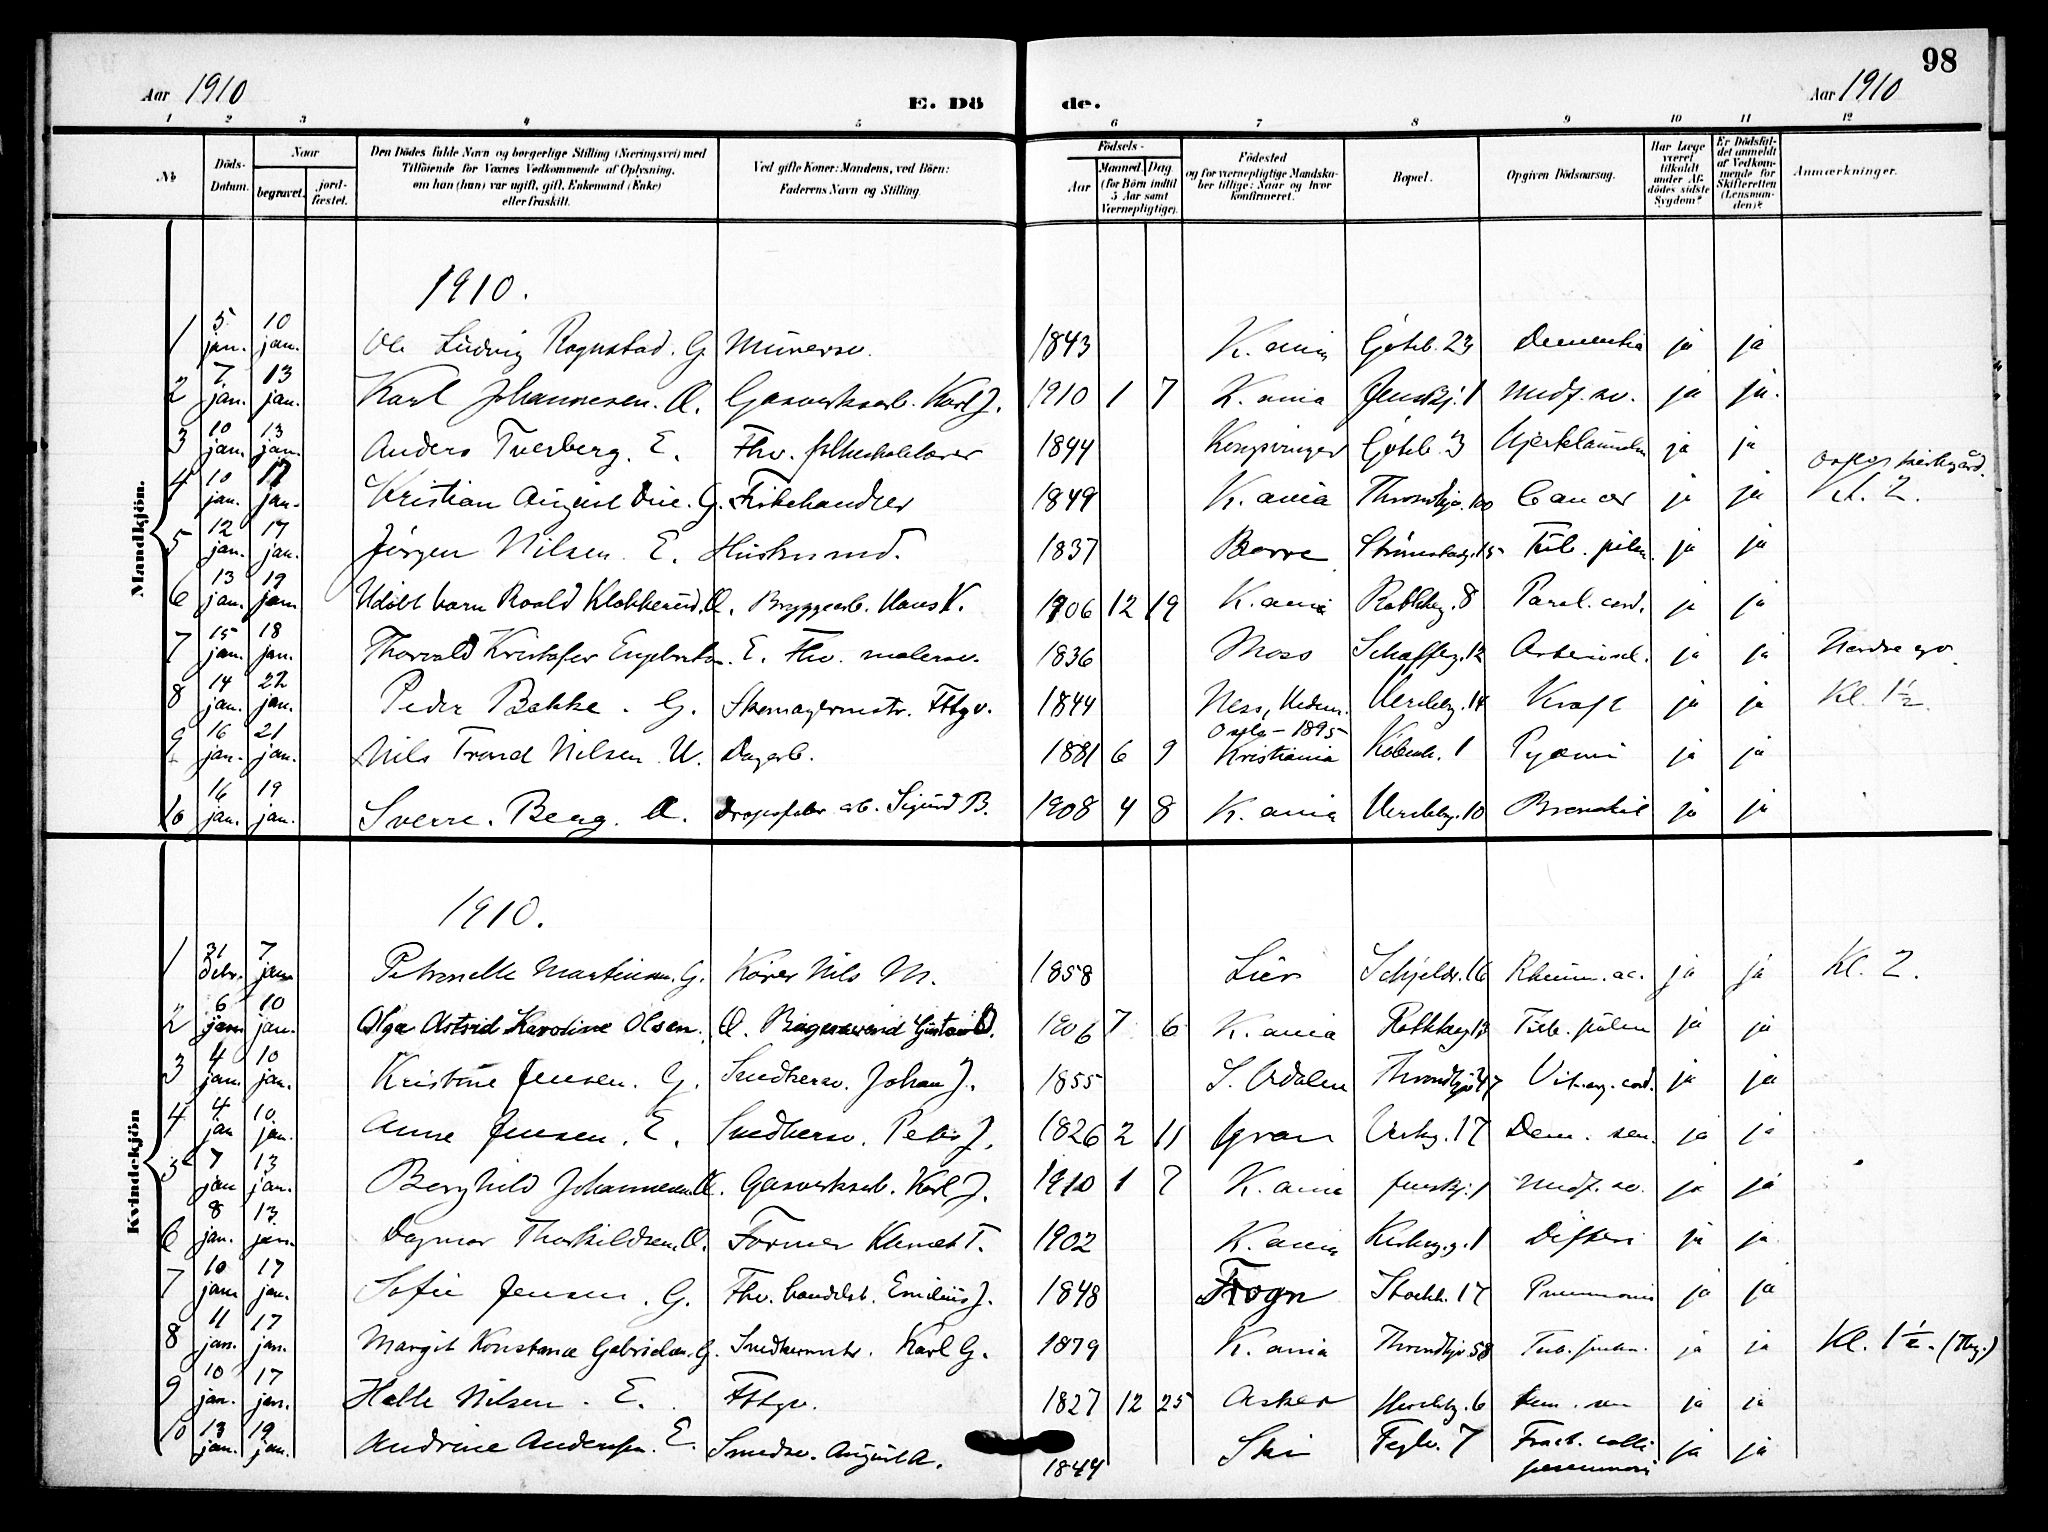 98
Aar 1910 E. Dö de. Aar 1910
1 2 3 4 5 6 7 8 9 10 11 12
No. Döds-Datum. Naar begravet. jord-fæstet. Den Dödes fulde Navn og borgerlige Stilling (Næringsvei) med Tilföiende for Voxnes Vedkommende af Oplysning, om han (hun) var ugift, gift, Enkemand (Enke) eller fraskilt. Ved gifte Koner: Mandens, ved Börn: Faderens Navn og Stilling. Födsels- Aar Maaned. Dag. (for Börn indtil 5 Aar samt Værnepligtige). Födested og for værnepligtige Mandskaber tillige: Naar og hvor konfirmeret. Bopæl. Opgiven Dödsaarsag. Har Læge været tilkaldt under Afdödes sidste Sygdom? Er Dödsfaldet anmeldt af Vedkommende for Skifteretten (Lensmanden)? Anmærkninger.
Mandkjön.
1910.
1 5 jan. 10 jan. Ole Ludvig Rognstad. G. Murersv. 1843 K.ania Göteb. 23 Dementia ja ja
2 7 jan. 13 jan. Karl Johannesen. U. Gasverksarb. Karl J. 1910 1 7 K.ania Jenskj. 1 Medf. sv. ja ja.
3 10 jan. 13 jan. Anders Tverberg. E. Fhv. folkeskolelærer 1844 Kongsvinger Göteb. 3 ja ja
4 10 jan. 17 jan. Kristian August Due. G. Fiskehandler 1849 K.ania Throndhjv. 100 Cancer ja ja Oslo kirkegård. Kl. 2.
5 12 jan. 17 jan. Jörgen Nilsen. E. Husmand. 1837 Borre Strömstadg. 15 Tub. pulm. ja ja
6 13 jan. 19 jan. Udöbt barn Roald Klokkerud. U. Bryggearb. Hans K. 1906 12 19 K.ania Rathkeg. 8 Paral. cord. ja ja
7 15 jan. 18 jan. Thorvald Kristofer Engebretsen. E. Fhv. malersv. 1836 Moss Schafteg. 12 Arterioscl. ja ja Nordre grv.
8 14 jan. 22 jan. Peder Bakke. G. Skomagermstr. Fttgv. 1844 Ness, Hedm. Herslebg. 14 Kræft ja ja Kl. 1½.
9 16 jan. 21 jan. Nils Trond Nilsen U. Dagarb. 1881 6 9 Oslo - 1895 Kristiania Köbenh. 1 Pyæmi ja ja
10 16 jan. 19 jan. Sverre Berg. U. arb. Sigurd B. 1908 4 8 K.ania Herslebg. 10 Bronchit ja ja
Kvindekjön
1910.
1 31 debr. 7 jan. Petronelle Martinsen. G. Kjörer Nils M. 1858 Lier Schjelds. 16 Rheum. ac. ja ja Kl. 2.
2 6 jan. 10 jan. Olga Astrid Karoline Olsen. U. Bagersvend Gustav O. 1906 7 6 K.ania Rathkeg 13 Tub. pulm ja ja
3 4 jan. 10 jan. Kristine Jensen. G. Snedkersv. Johan J. 1855 S. Odalen Throndhjv 47 Vit. org. cord. ja ja
4 4 jan 10 jan. Anne Jensen. E. Snedkersv. Peter J. 1826 2 11 Gran Verksg. 17 Dem. sen. ja ja
5 7 jan 13 jan. Borghild Johannesen. U. Gasverksarb. Karl J. 1910 1 7 K.ania Jenskj. 1 Medf. sv. ja ja
6 8 jan. 13 jan. Dagmar Thorkildsen. U. Former Klemet T. 1902 K.ania Difteri ja ja
7 10 jan. 17 jan. Sofie Jensen. G. Fhv. handelsb. Emilius J. 1848 Frogn Stockh. 17 Pneumoni ja ja
8 11 jan. 17 jan. Margit Konstance Gabrielsen. G. Snedkermstr. Karl G. 1879 K.ania Throndhjv. 58 Tub. pulm. ja ja Kl. 1½. (Thg.)
9 10 jan. 17 jan. Helle Nilsen. E. Fttgv. 1827 12 25 Asker Herslebg. 6 Dem. sen ja ja
10 13 jan. 19 jan. Andrine Andersen. E. Smedsv. August A. 1844 Ski Teglv. 7 Fract. colli pneumoni ja ja